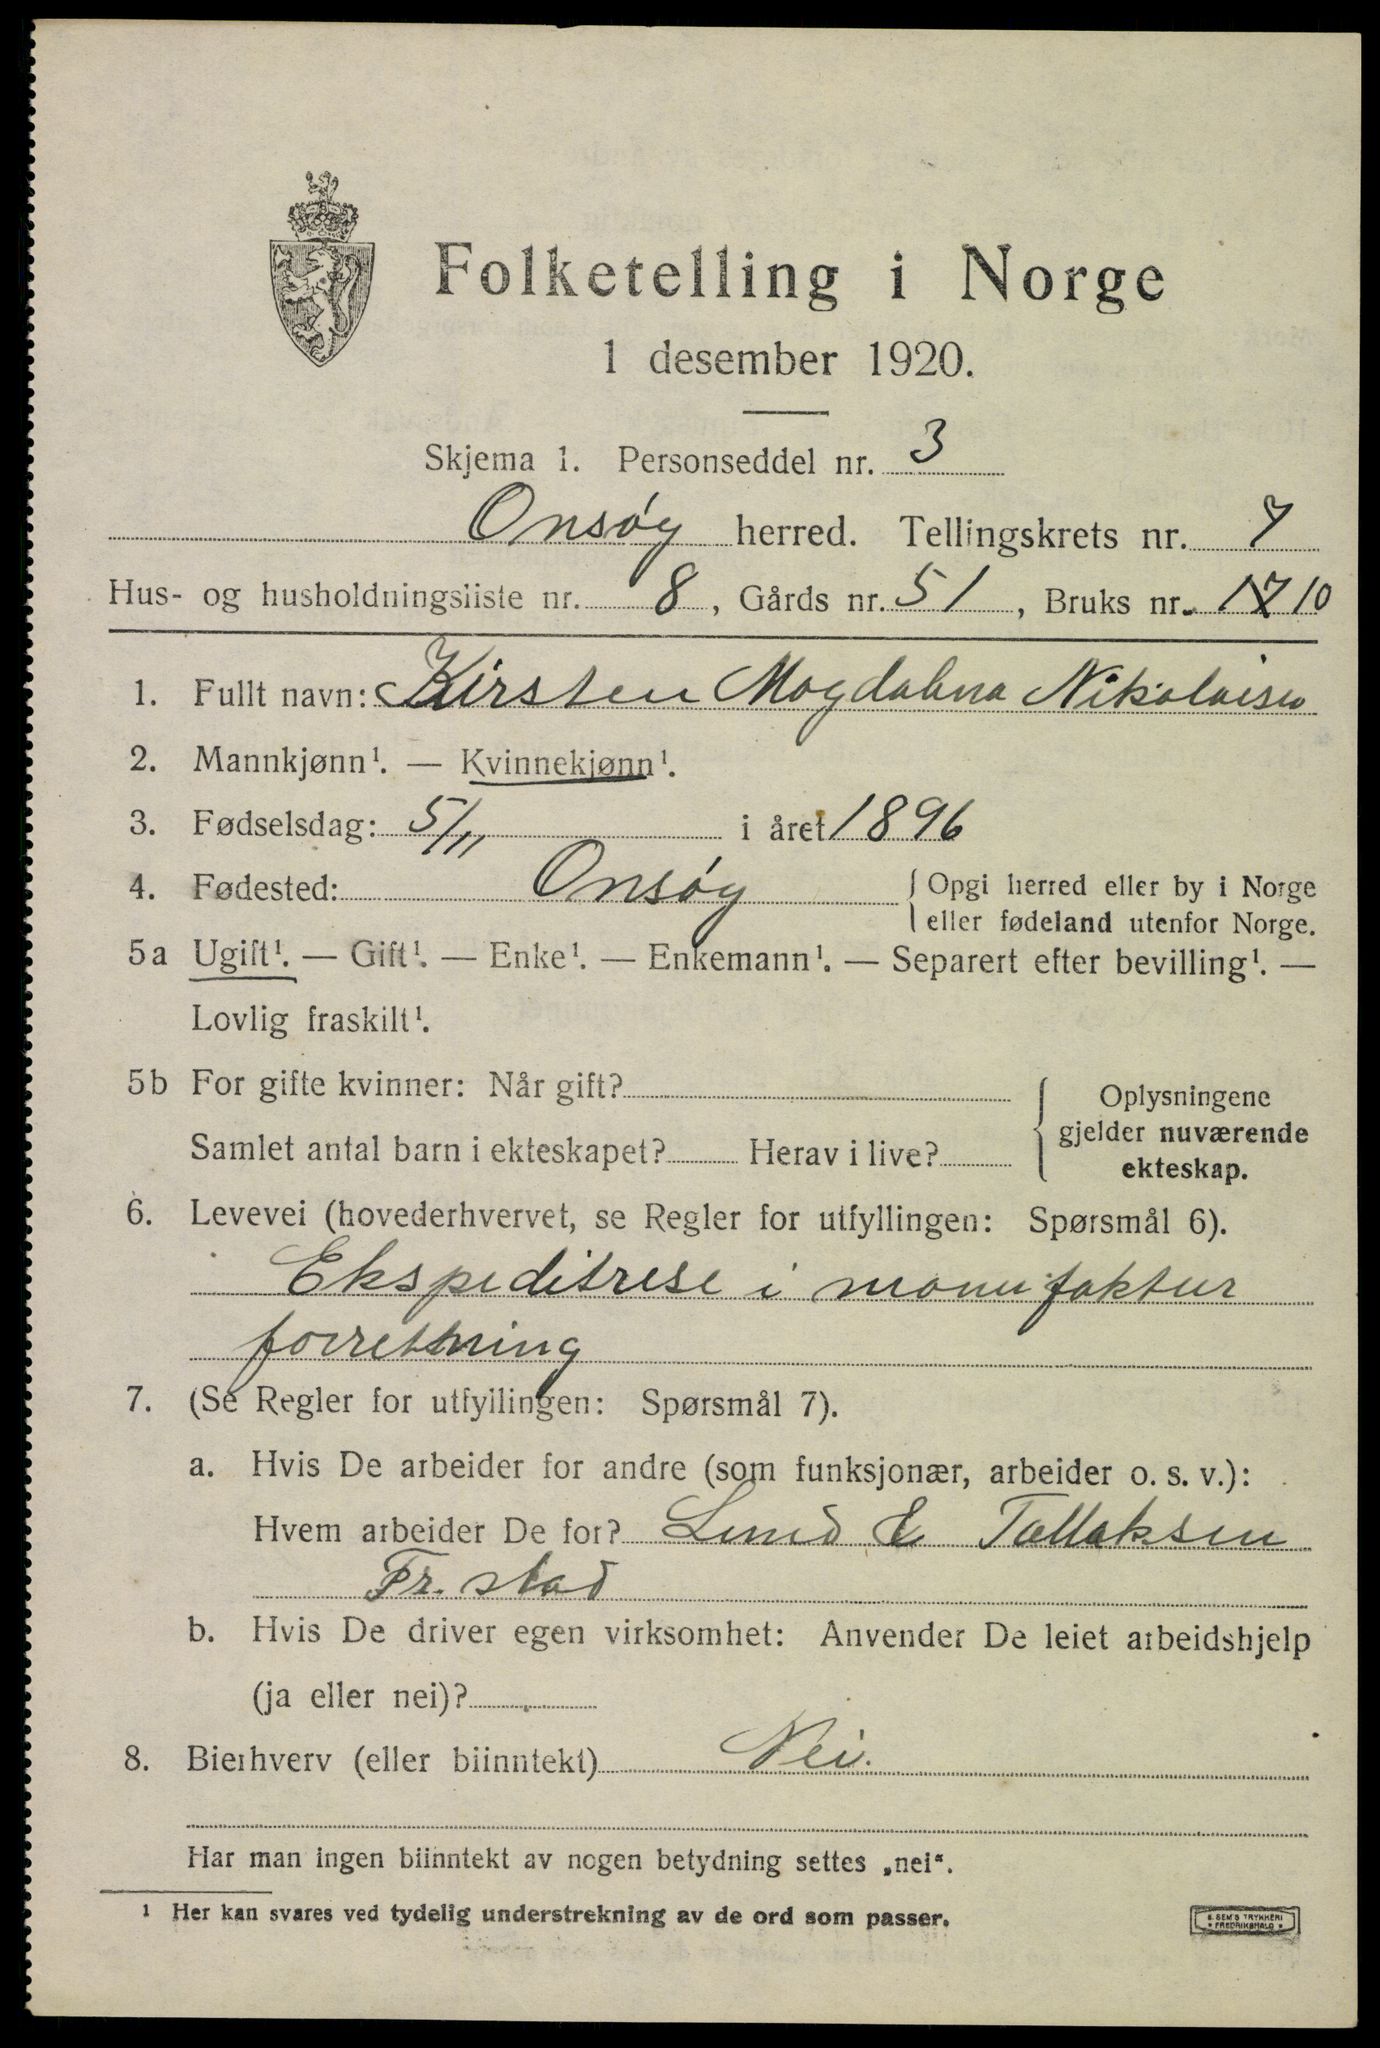 Folketelling i Norge
1 desember 1920.
Skjema 1. Personseddel nr. 3
Onsøy herred. Tellingskrets nr. 7
Hus- og husholdningsliste nr. 8, Gårds nr. 51, Bruks nr. 17 10
1. Fullt navn: Kirsten Magdalena Nikolaisen
2. Mannkjønn¹. — Kvinnekjønn¹.
3. Fødselsdag: 5/11 i året 1896
4. Fødested: Onsøy { Opgi herred eller by i Norge
eller fødeland utenfor Norge.
5a Ugift¹. — Gift¹. — Enke¹. — Enkemann¹. — Separert efter bevilling¹. —
Lovlig fraskilt¹.
5b For gifte kvinner: Når gift?
Samlet antal barn i ekteskapet? Herav i live?
Oplysningene
gjelder nuværende
ekteskap.
6. Levevei (hovederhvervet, se Regler for utfyllingen: Spørsmål 6).
Ekspeditrise i manufaktur
forretning
7. (Se Regler for utfyllingen: Spørsmål 7).
a. Hvis De arbeider for andre (som funksjonær, arbeider o. s. v.):
Hvem arbeider De for? Lund & Tallaksen
Fr. stad
b. Hvis De driver egen virksomhet: Anvender De leiet arbeidshjelp
(ja eller nei)?
8. Bierhverv (eller biinntekt) Nei.
Har man ingen biinntekt av nogen betydning settes „nei“.
¹ Her kan svares ved tydelig understrekning av de ord som passer.
E. SEM'S TRYKKERI
* FREDRIKSHALD *